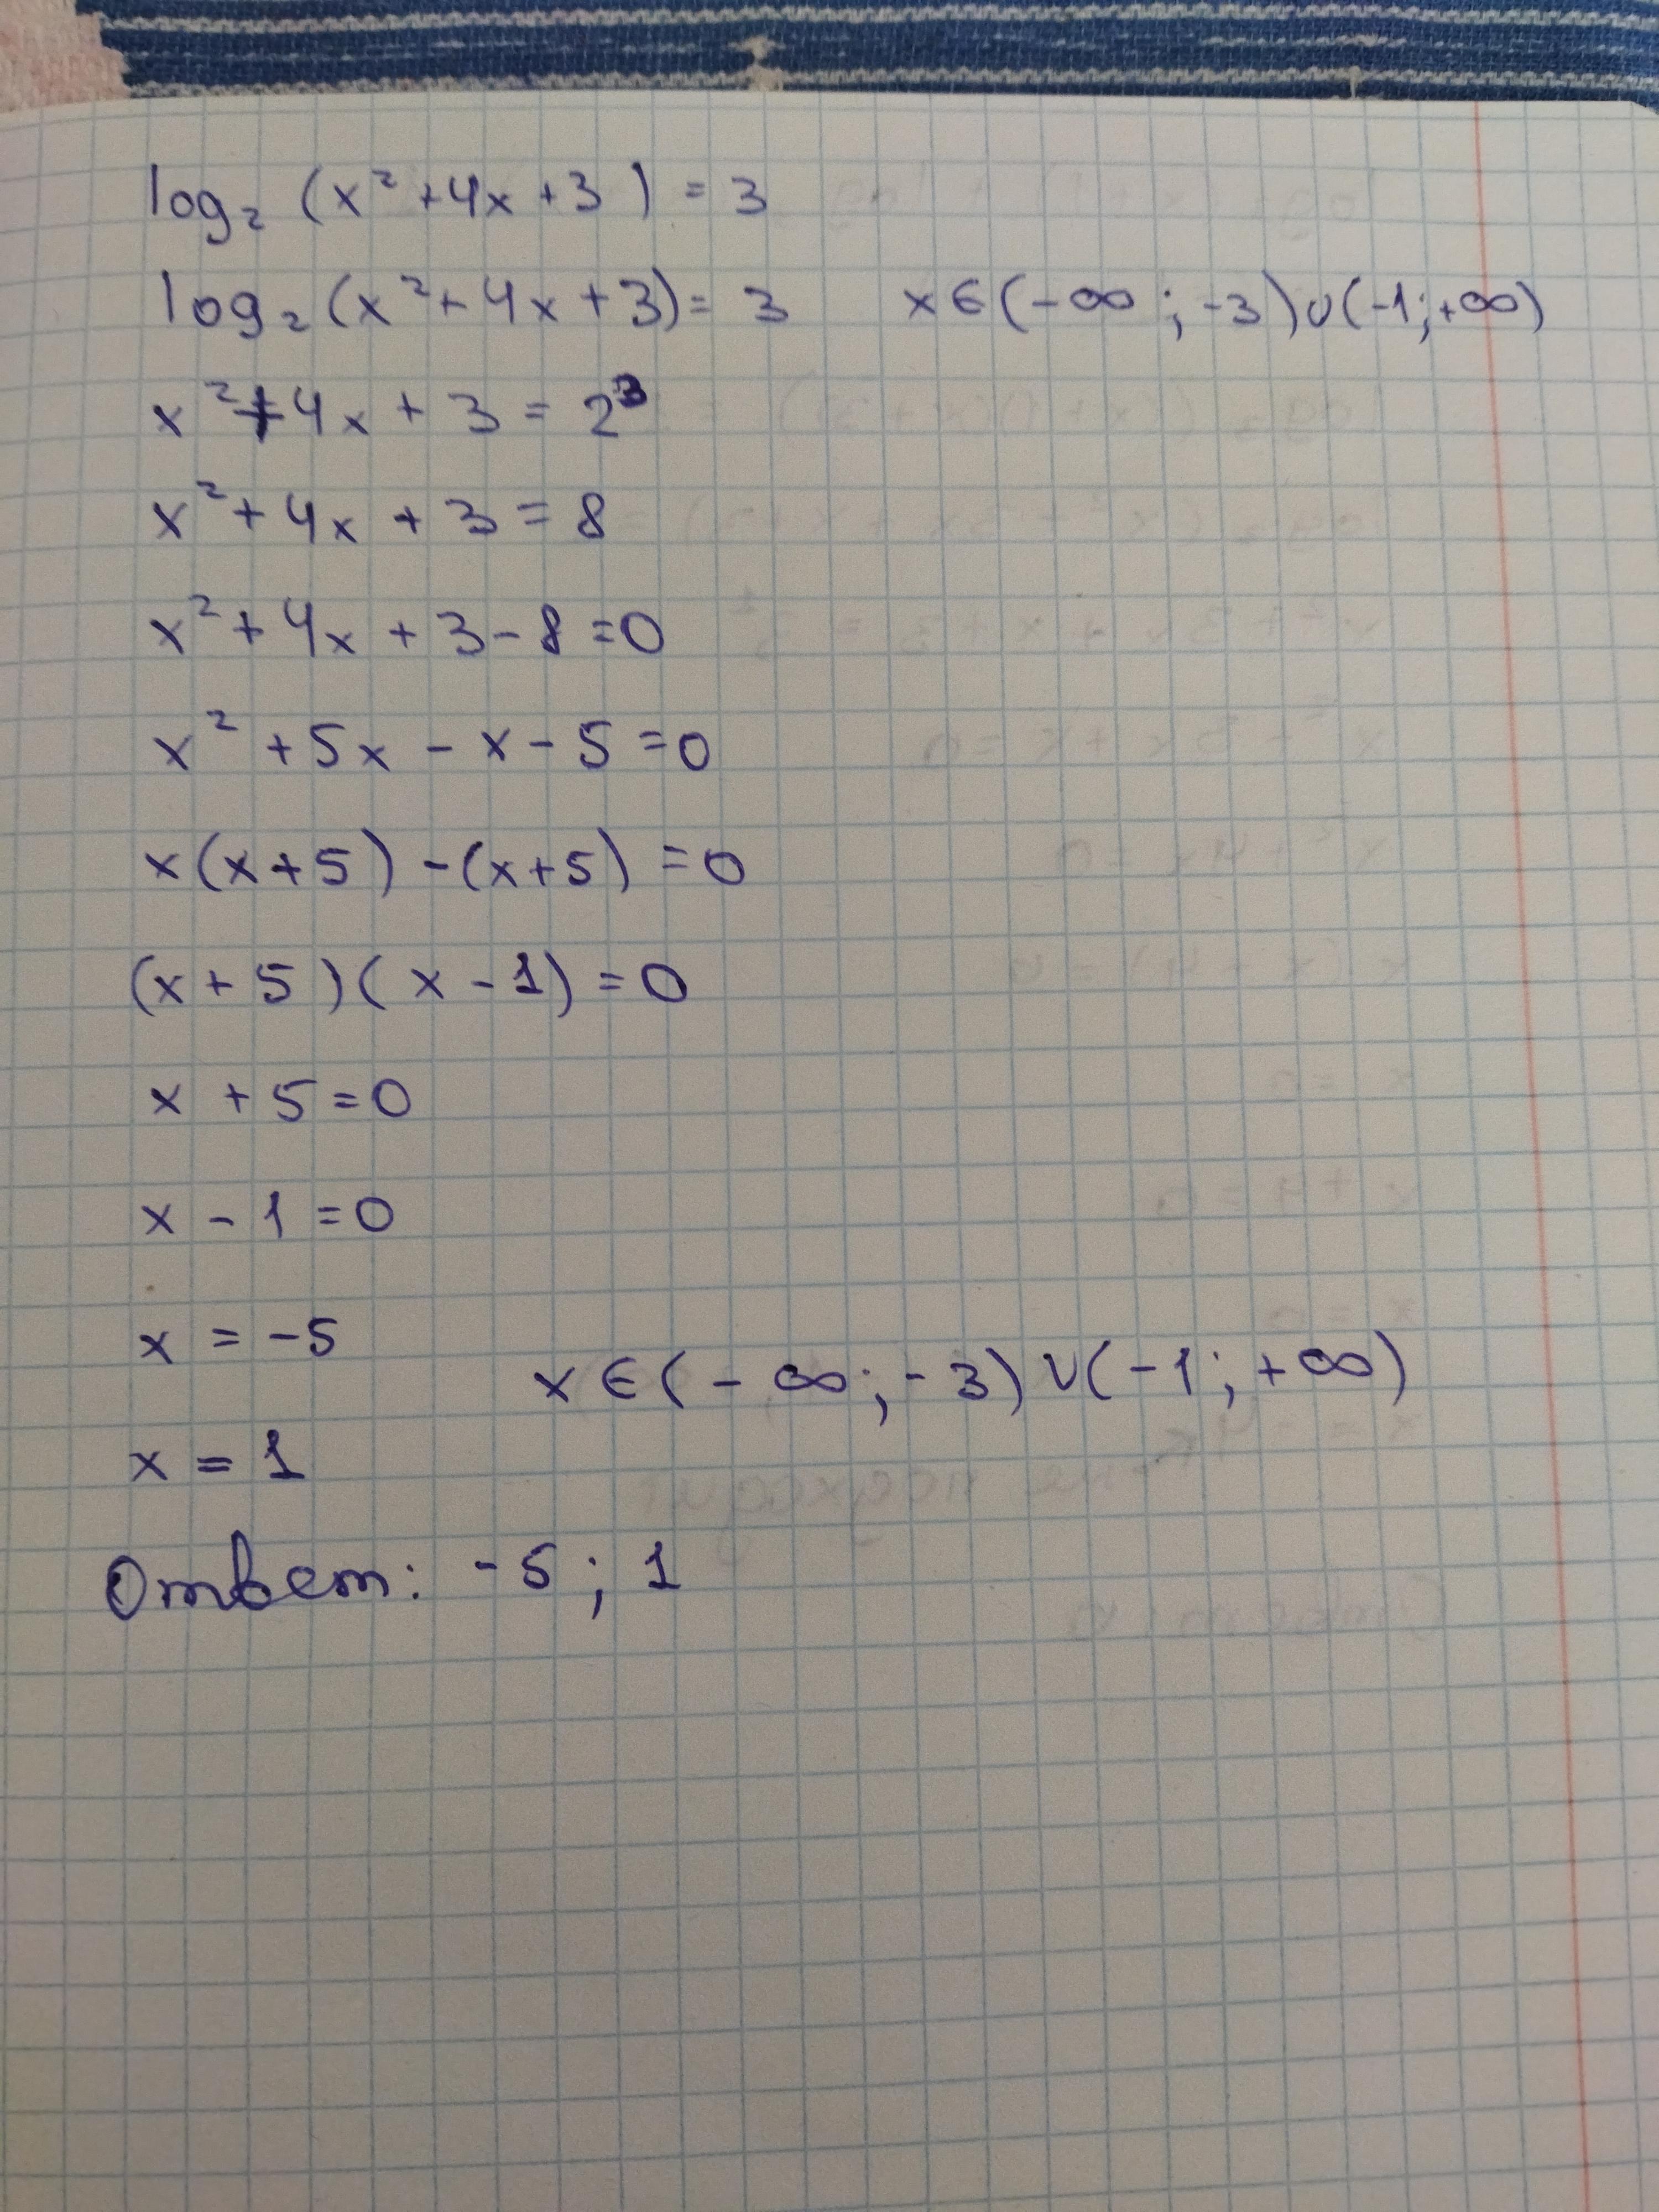 log₂ (x² + 4x + 3) = 3
log₂ (x² + 4x + 3) = 3 x ∈ (-∞; -3) ∪ (-1; +∞)
x² + 4x + 3 = 2³
x² + 4x + 3 = 8
x² + 4x + 3 - 8 = 0
x² + 5x - x - 5 = 0
x(x + 5) - (x + 5) = 0
(x + 5)(x - 1) = 0
x + 5 = 0
x - 1 = 0
x = -5
x ∈ (-∞; -3) ∪ (-1; +∞)
x = 1
Ответ: -5; 1